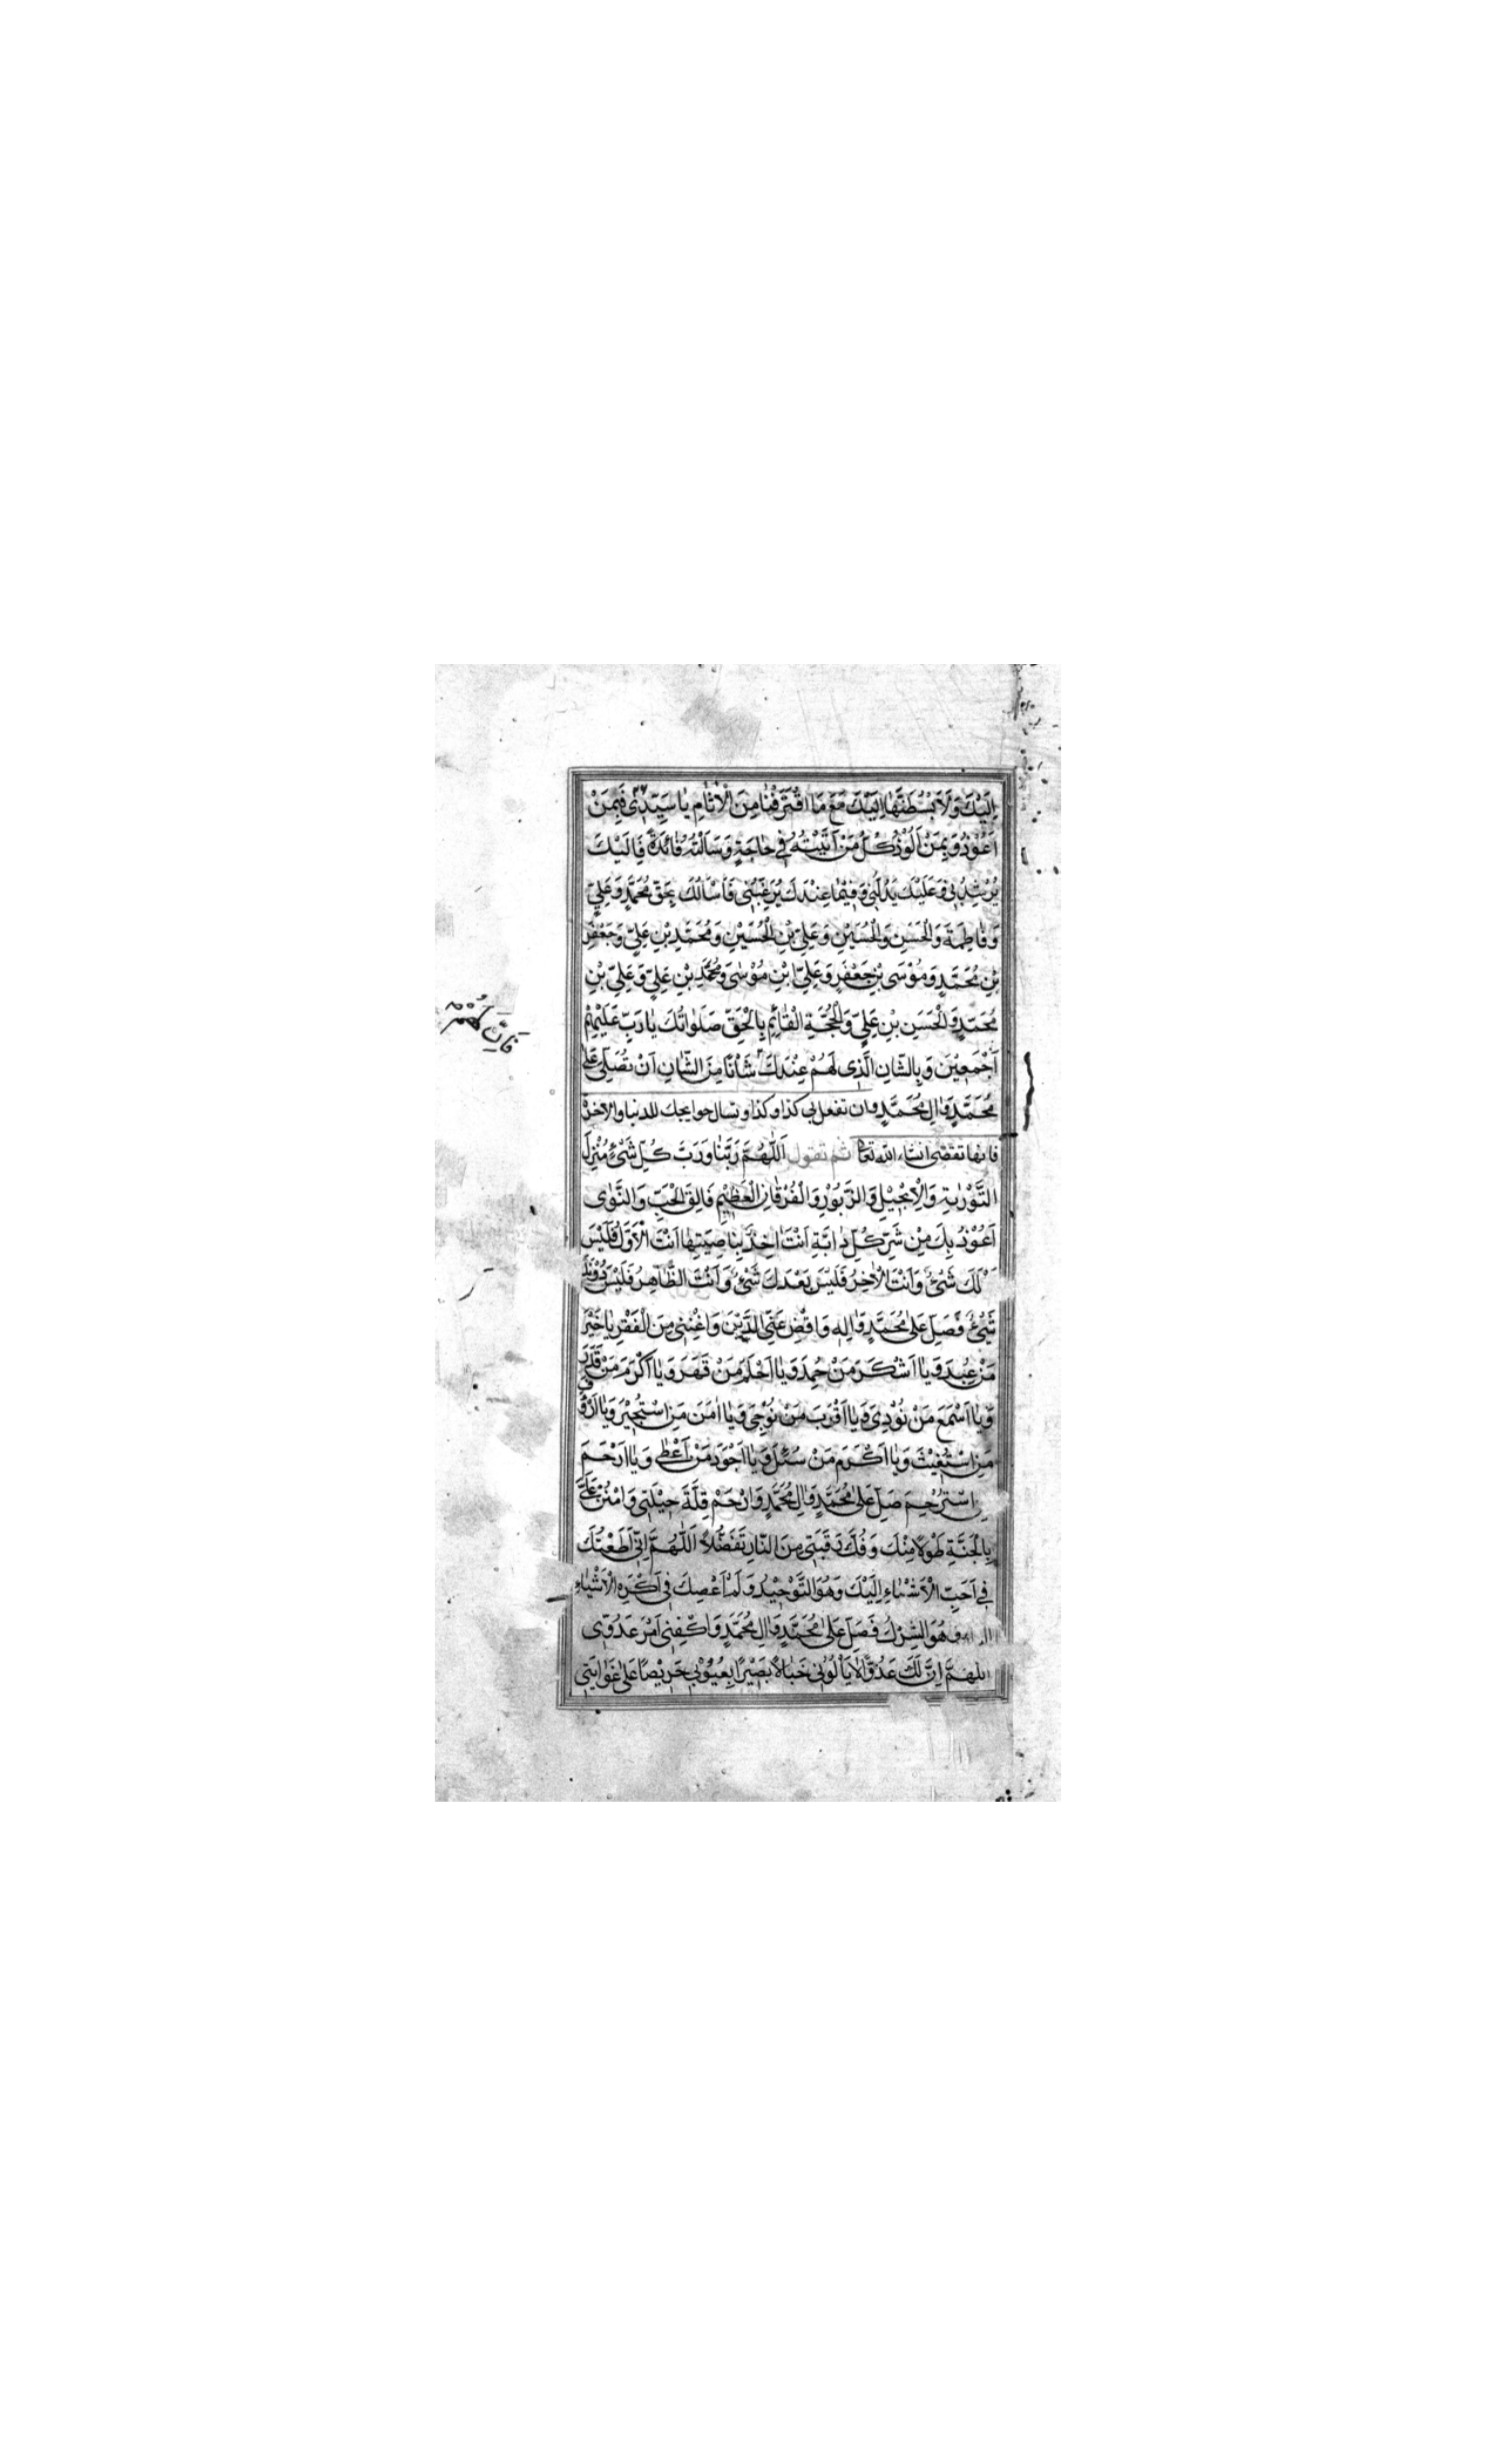 اِلَيْكَ وَلَا بَسَطْتَهَا اِلَيْكَ مَعَ مَا اقْتَرَفْنَا مِنَ الْاٰثَامِ يَا سَيِّدِي فَبِمَنْ
اَعُوْذُ وَبِمَنْ اَلُوْذُ كُلُّ مَنْ اَتَيْتُهُ فِي حَاجَةٍ وَسَاَلْتُهُ فَائِدَةً فَاِلَيْكَ
يُرْشِدُنِي وَعَلَيْكَ يَدُلُّنِي وَفِيْمَا عِنْدَكَ يُرَغِّبُنِي فَاَسْاَلُكَ بِحَقِّ مُحَمَّدٍ وَعَلِيٍّ
وَفَاطِمَةَ وَالْحَسَنِ وَالْحُسَيْنِ وَعَلِيِّ بْنِ الْحُسَيْنِ وَمُحَمَّدِ بْنِ عَلِيٍّ وَجَعْفَرِ
بْنِ مُحَمَّدٍ وَمُوْسَى بْنِ جَعْفَرٍ وَعَلِيِّ ابْنِ مُوْسٰى وَمُحَمَّدِ بْنِ عَلِيٍّ وَعَلِيِّ بْنِ
مُحَمَّدٍ وَالْحَسَنِ بْنِ عَلِيٍّ وَالْحُجَّةِ الْقَائِمِ بِالْحَقِّ صَلَوَاتُكَ يَا رَبِّ عَلَيْهِمْ
اَجْمَعِيْنَ وَبِالشَّانِ الَّذِي لَهُمْ عِنْدَكَ شَانًا مِنَ الشَّانِ اَنْ تُصَلِّيَ عَلٰى
فَاِنَّ لَهُمْ
مُحَمَّدٍ وَاٰلِ مُحَمَّدٍ وان تفعل بي كذا وكذا وتسال حوايجك للدنيا والاخرة
فانها تقضى انشاء الله تعالى ثم تقول اَللّٰهُمَّ رَبَّنَا وَرَبَّ كُلِّ شَيْءٍ مُنْزِلَ
التَّوْرٰيةِ وَالْاِنْجِيْلِ وَالزَّبُوْرِ وَالْفُرْقَانِ الْعَظِيْمِ فَالِقَ الْحَبِّ وَالنَّوٰى
اَعُوْذُ بِكَ مِنْ شَرِّ كُلِّ دَابَّةٍ اَنْتَ اٰخِذٌ بِنَاصِيَتِهَا اَنْتَ الْاَوَّلُ فَلَيْسَ
لَكَ شَيْءٌ وَاَنْتَ الْاٰخِرُ فَلَيْسَ بَعْدَكَ شَيْءٌ وَاَنْتَ الظَّاهِرُ فَلَيْسَ دُوْنَكَ
شَيْءٌ فَصَلِّ عَلٰى مُحَمَّدٍ وَاٰلِهِ وَاقْضِ عَنِّي الدَّيْنَ وَاغْنِنِي مِنَ الْفَقْرِ يَا خَيْرَ
مَنْ عُبِدَ وَيَا اَشْكَرَ مَنْ حُمِدَ وَيَا اَحْلَمَ مَنْ قَهَرَ وَيَا اَكْرَمَ مَنْ قَدَرَ
وَيَا اَسْمَعَ مَنْ نُوْدِيَ وَيَا اَقْرَبَ مَنْ نُوْجِيَ وَيَا اٰمَنَ مَنِ اسْتُجِيْرَ وَيَا اَرْؤُفَ
مَنِ اسْتُغِيْثَ وَيَا اَكْرَمَ مَنْ سُئِلَ وَيَا اَجْوَدَ مَنْ اَعْطٰى وَيَا اَرْحَمَ
اسْتُرْحِمَ صَلِّ عَلٰى مُحَمَّدٍ وَاٰلِ مُحَمَّدٍ وَارْحَمْ قِلَّةَ حِيْلَتِي وَامْنُنْ عَلَيَّ
بِالْجَنَّةِ طَوْلًا مِنْكَ وَفُكَّ رَقَبَتِي مِنَ النَّارِ تَفَضُّلًا اَللّٰهُمَّ اِنِّي اَطَعْتُكَ
فِي اَحَبِّ الْاَشْيَاءِ اِلَيْكَ وَهُوَ التَّوْحِيْدُ وَلَمْ اَعْصِكَ فِي اَكْرَهِ الْاَشْيَاءِ
وَهُوَ الشِّرْكُ فَصَلِّ عَلٰى مُحَمَّدٍ وَاٰلِ مُحَمَّدٍ وَاكْفِنِي اَمْرَ عَدُوِّي
اللّٰهُمَّ اِنَّ لَكَ عَدُوًّا لَا يَاْلُوْنِي خَبَالًا بَصِيْرًا بِعُيُوْبِي حَرِيْصًا عَلٰى غَوَايَتِي